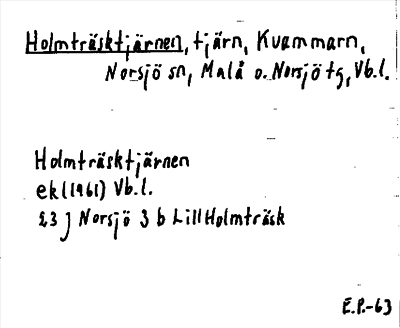 Holmträsktjärnen, tjärn, Kvammarn,
Norsjö sn, Malå o. Norsjö tg, Vb.l.
Holmträsktjärnen
ek (1961) Vb.l.
23 J Norsjö 3 b Lill Holmträsk
E.P.-63